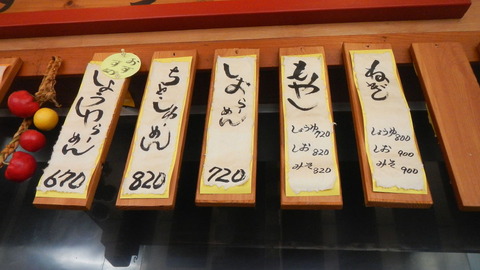 おすすめ
しょうゆらーめん
670
ちゃーしゅーめん
820
しおらーめん
720
もやし
しょうゆ 720
しお 820
みそ 820
ねぎ
しょうゆ 800
しお 900
みそ 900